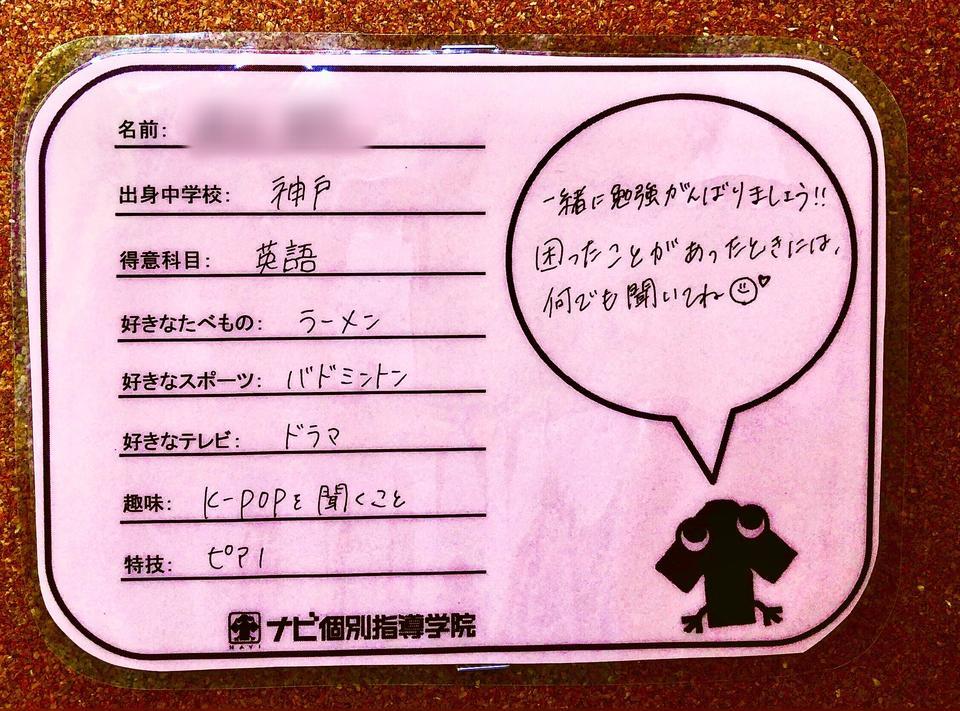 名前:
出身中学校: 神戸
得意科目: 英語
好きなたべもの: ラーメン
好きなスポーツ: バドミントン
好きなテレビ: ドラマ
趣味: K-POPを聞くこと
特技: ピアノ
NAVI ナビ個別指導学院
一緒に勉強がんばりましょう!!
困ったことがあったときには、
何でも聞いてね